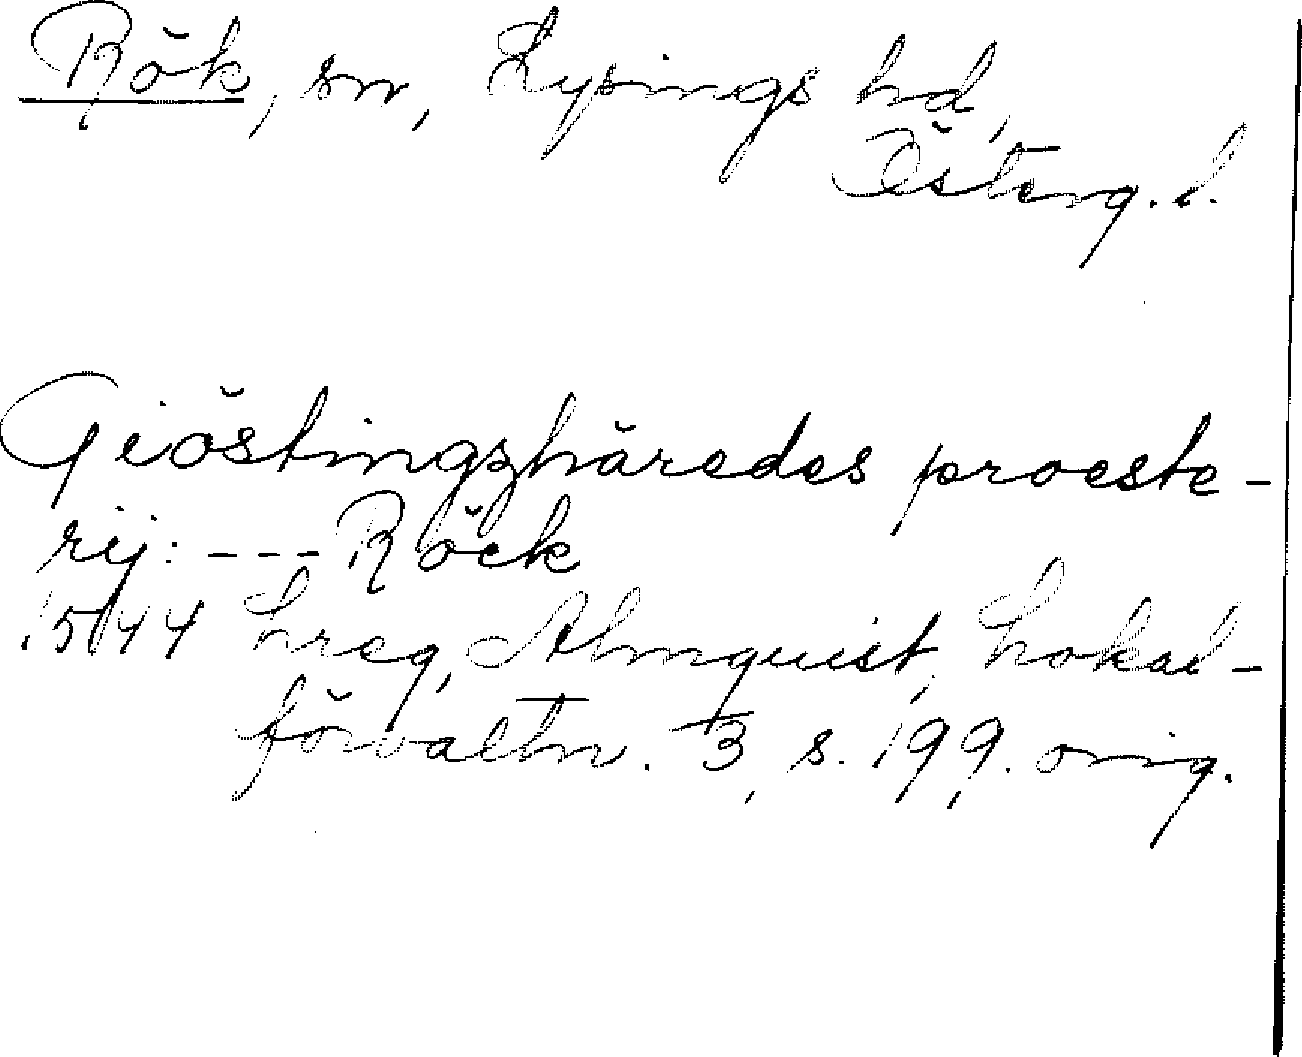 Rök, sn, Lysings hd,
Österg. l.
Giöstingzhäredes proeste-
rij: --- Röck
1544 Lreg, Almquist, Lokal-
förvaltn. 3, s. 199. orig.